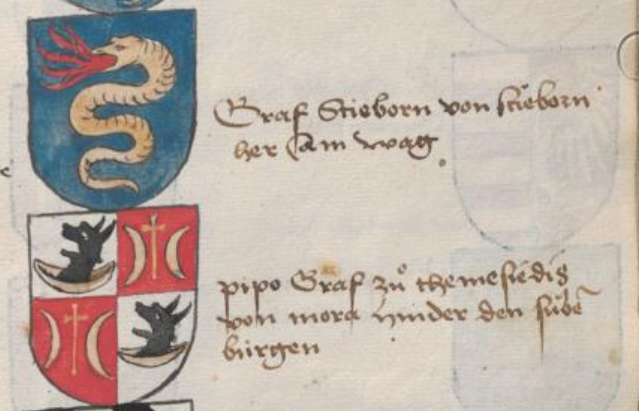 Graf Stieborn von stieborn
her Am wag
pipo Graf zů themesiedis
von mora hinder den sübē
bürgen